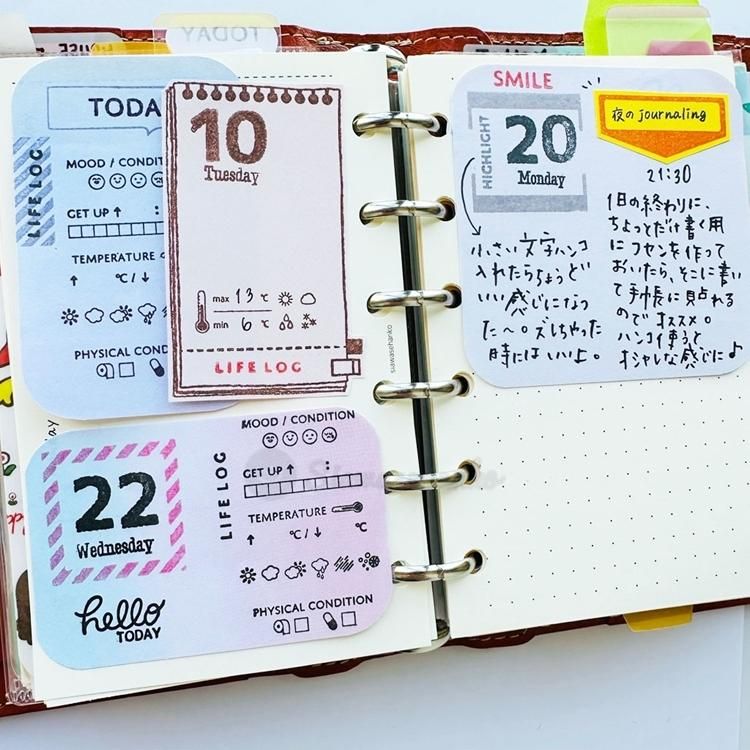 TODAY
TODA
LIFE LOG
MOOD / CONDIT
GET UP ↑ :
TEMPERATURE
↑ ℃/↓
PHYSICAL COND
10
Tuesday
max 13 ℃
min 6 ℃
LIFE LOG
siawasehanko
22
Wednesday
hello
TODAY
LIFE LOG
MOOD / CONDITION
GET UP ↑ :
TEMPERATURE
↑ ℃/↓ ℃
PHYSICAL CONDITION
SMILE
HIGHLIGHT
20
Monday
小さい文字ハンコ
入れたらちょうど
いい感じになっ
た〜。ズレちゃった
時にはいいよ。
夜のjournaling
21:30
1日の終わりに、
ちょっとだけ書く用
にフセンを作って
おいたら、そこに書い
て手帳に貼れる
のでオススメ。
ハンコ使うと
オシャレな感じに♪